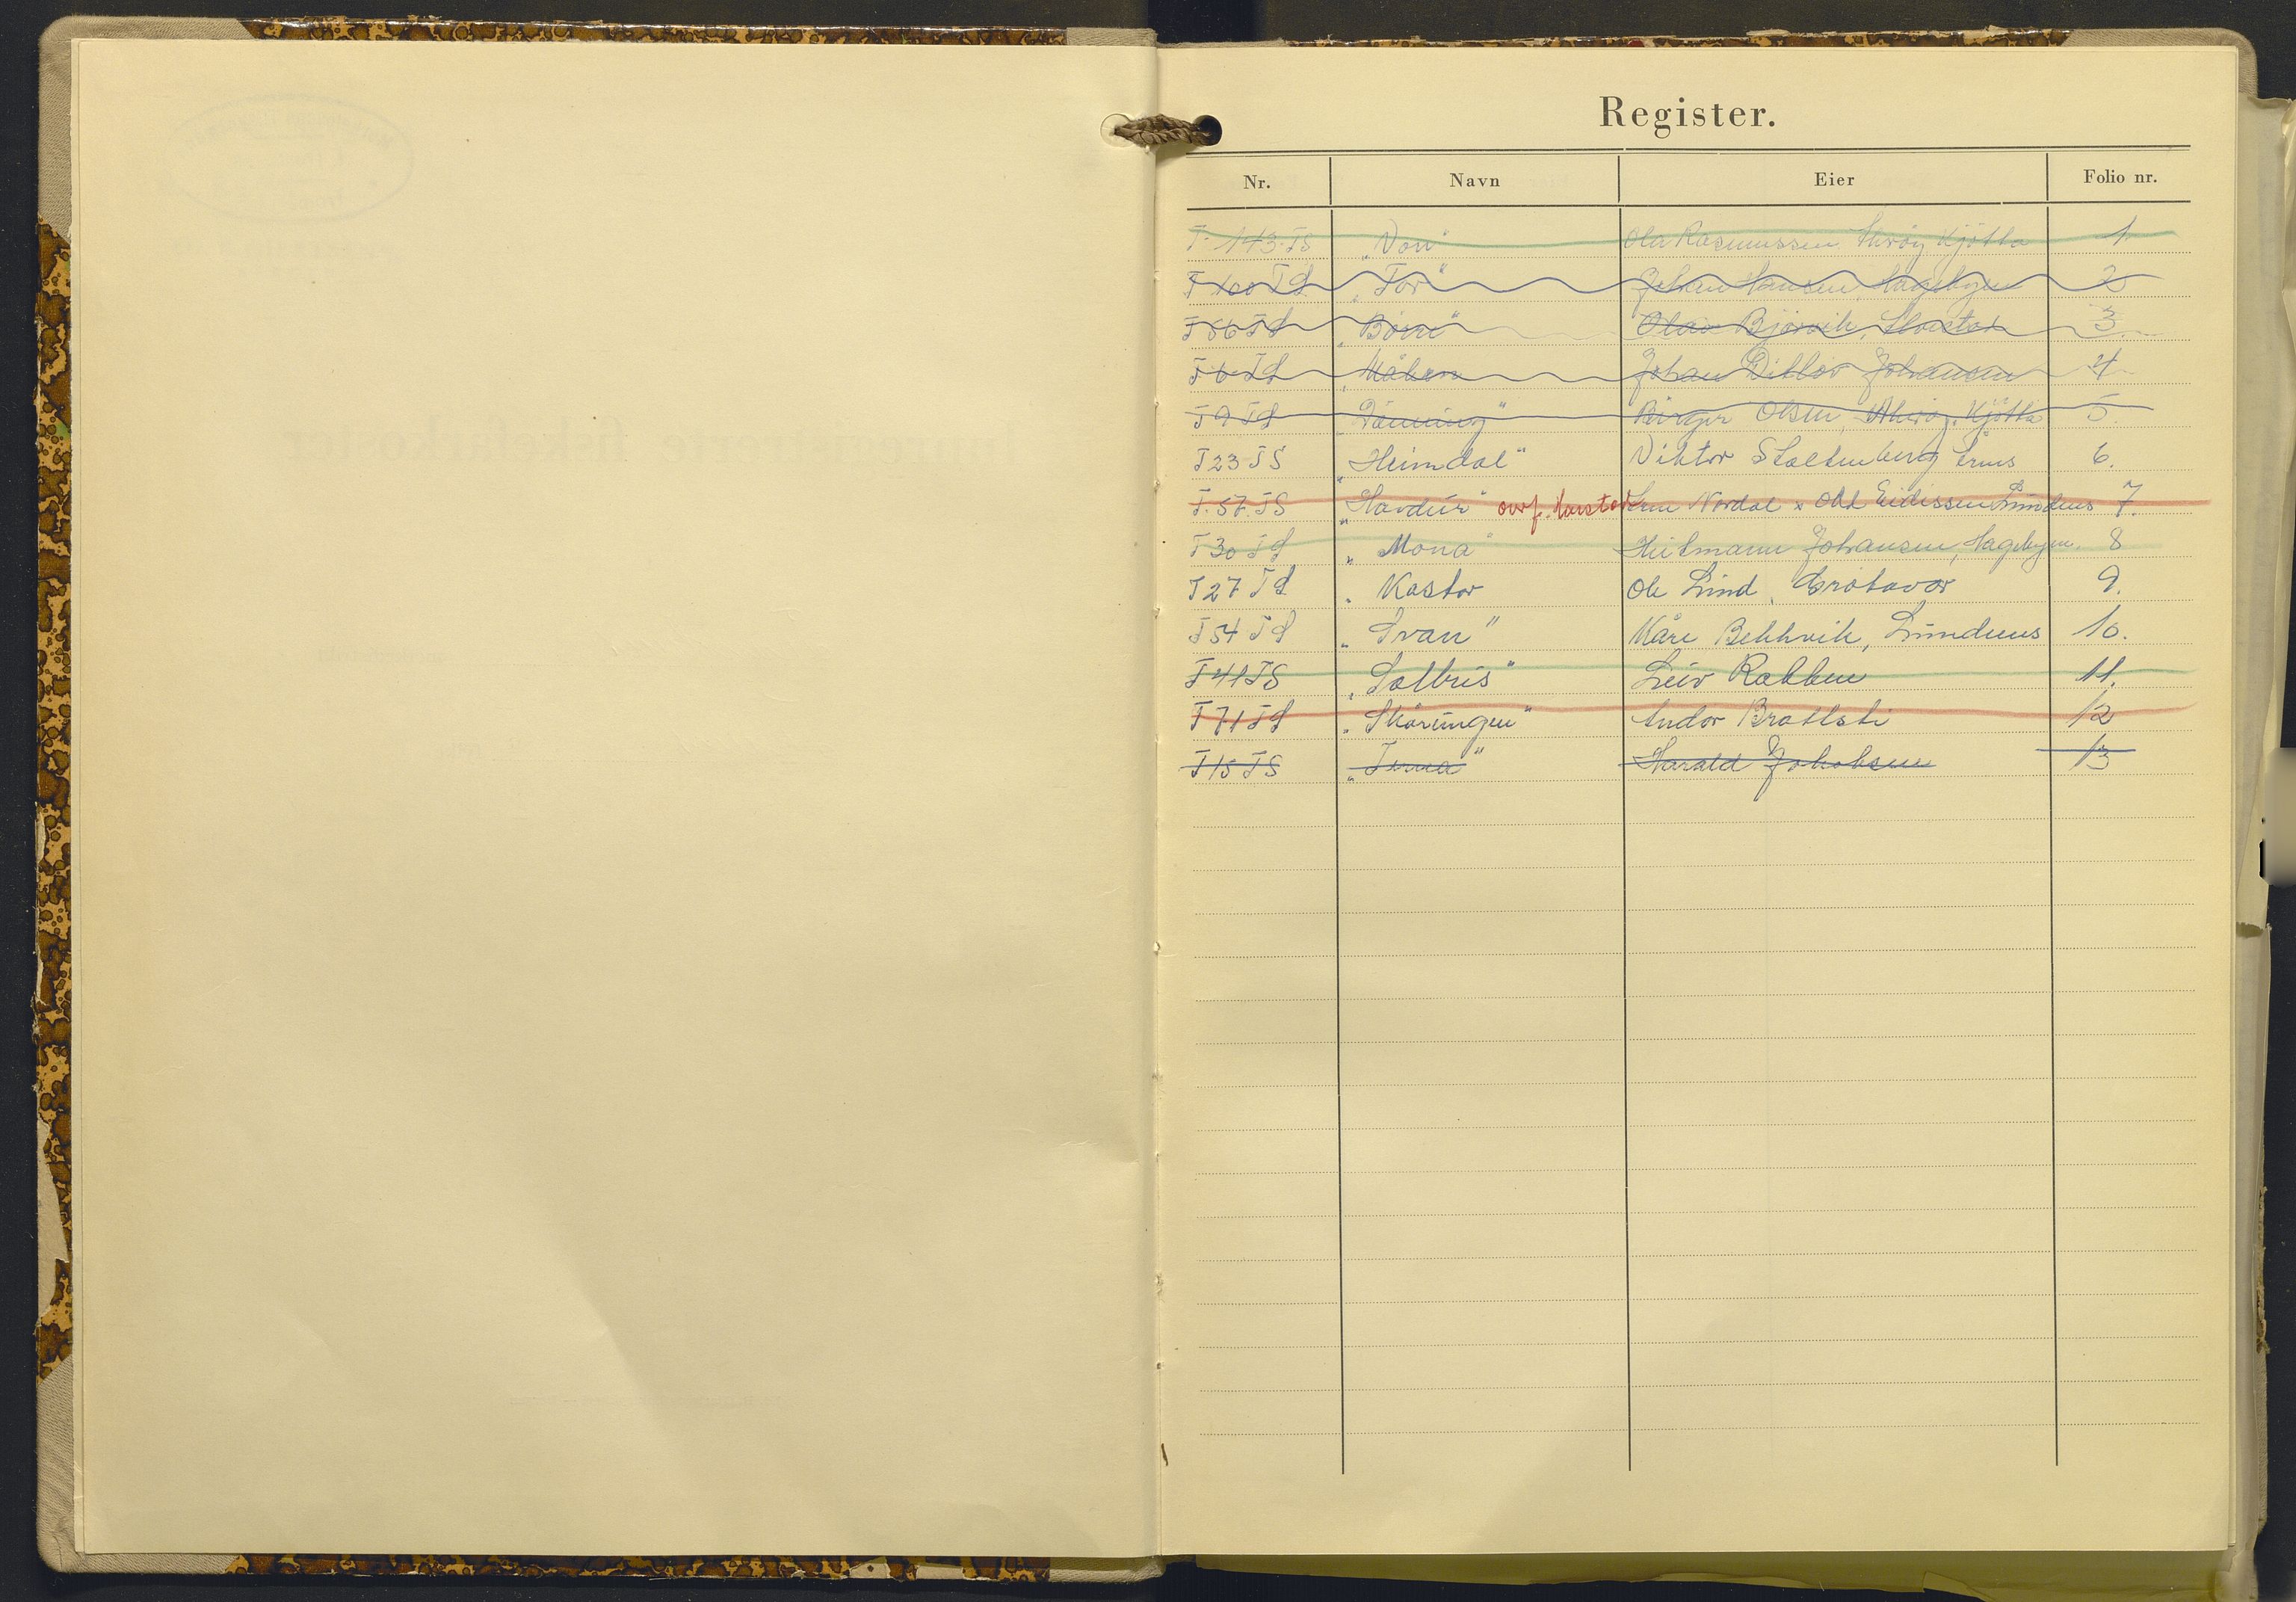 Register.
Nr. Navn Eier Folio nr.
T. 143. TS „Von" Ola Rasmussen, Kjøtta 1
T 100 TS „Tor" Johan Hansen, Hagebyen 2
T 56 TS „Båra" Olav Bjørvik, 3.
T 6 TS „Måken Johan Ditlov Johansen 4
T 9 TS „Dønning" Birger Olsen, Kjøtta 5.
T 23 TS „Heimdal" Viktor Stoltenberg 6.
T. 57. TS „Havdur" ovf. Harstad Nordal & Odd Eidissen Lundenes 7.
T 30 TS „Mona" Hilmann Johansen, Hagebyen. 8
T 27 TS „Kastor Ole Lund, Grøtavær 9.
T 54 TS „Svan" Kåre Bekkvik, Lundenes 10.
T 41 TS „Solbris" Leiv Rabben 11.
T 71 TS „Skåringen" Andor Brattsti 12
T 15 TS „Terna" Harald Jakobsen 13